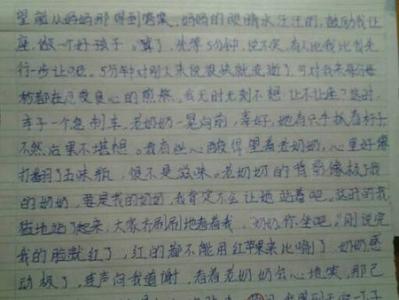 望能从妈妈那得到答案，妈妈的眼睛水汪汪的，鼓励我让
座，做一个好孩子。"算了，先等5分钟，说不定，有人他比我先
行一步让了呢。5分钟对别人来说很快就变逝了，可对我来每分每
秒都在忍受良心的煎熬。我无时无刻不想：让不让座？这时，
车子一个急刹车，老奶奶一晃向前，幸好，她有只手扶着杆子
不然后果不堪想。我有些心酸得望着老奶奶，心里好像
打翻了五味瓶，很不是滋味。老奶奶的背影像极了我
的奶奶，要是我的奶奶，我肯定不会让她站着吧。这时的我
猛地站了起来，大家齐刷刷地看着我，"奶奶你坐吧。"刚说完
我的脸就红了，红的都不能用红苹果来比喻了，奶奶感
动极了，连声向我道谢，看着老奶奶会心地笑，那已